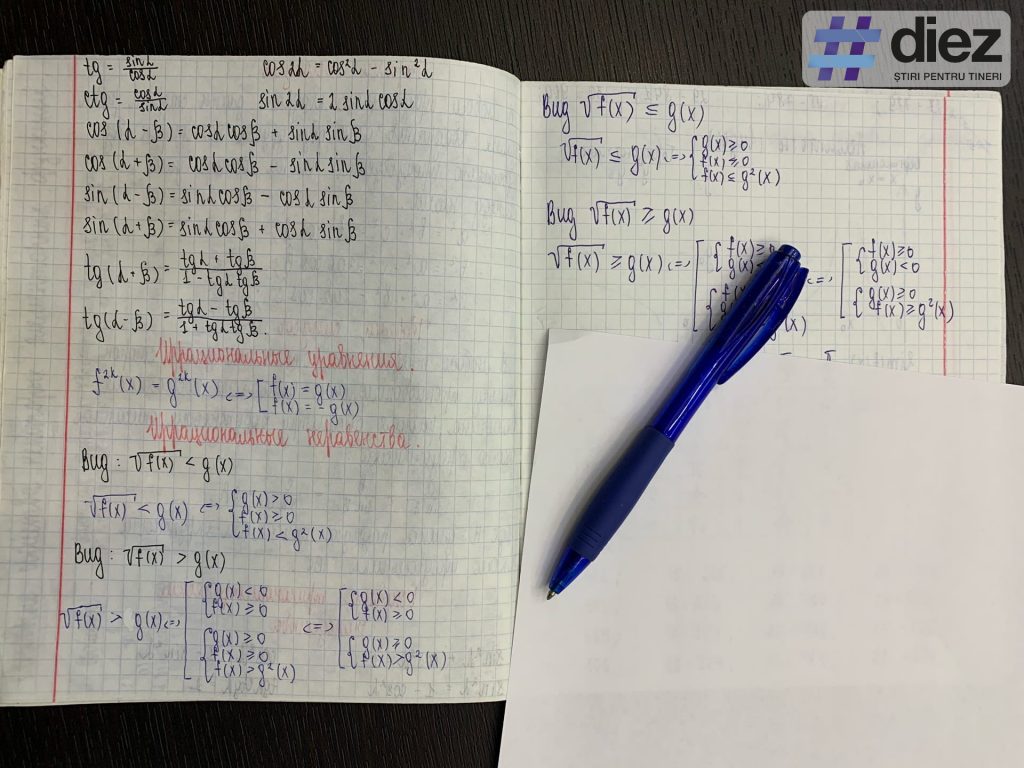 # diez
ȘTIRI PENTRU TINERI
tg = sinα/cosα cos2α = cos²α - sin²α
ctg = cosα/sinα sin2α = 2 sinα cosα
cos(α-β) = cosα cosβ + sinα sinβ
cos(α+β) = cosα cosβ - sinα sinβ
sin(α-β) = sinα cosβ - cosα sinβ
sin(α+β) = sinα cosβ + cosα sinβ
tg(α+β) = tgα + tgβ / 1 - tgα tgβ
tg(α-β) = tgα - tgβ / 1 + tgα tgβ.
Иррациональные уравнения.
f²ᵏ(x) = g²ᵏ(x) <=> [ f(x) = g(x)
f(x) = -g(x)
Иррациональные неравенства.
Вид: √f(x) < g(x)
√f(x) < g(x) <=> { g(x) > 0
f(x) ≥ 0
f(x) < g²(x)
Вид: √f(x) > g(x)
√f(x) > g(x) <=> [ { g(x) < 0
f(x) ≥ 0
{ g(x) ≥ 0
f(x) ≥ 0
f(x) > g²(x)
<=> [ { g(x) < 0
f(x) ≥ 0
{ g(x) ≥ 0
f(x) > g²(x)
Вид √f(x) ≤ g(x)
√f(x) ≤ g(x) <=> { g(x) ≥ 0
f(x) ≥ 0
f(x) ≤ g²(x)
Вид √f(x) ≥ g(x)
√f(x) ≥ g(x) <=> [ { f(x) ≥ 0
g(x)
<=> [ { f(x) ≥ 0
g(x) < 0
{ g(x) ≥ 0
f(x) ≥ g²(x)